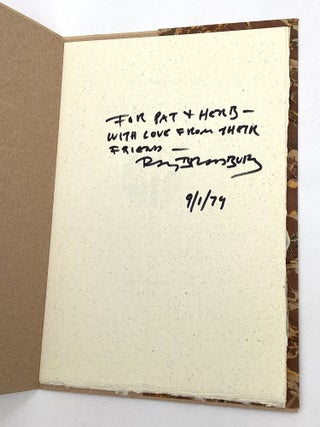 FOR PAT & HERB —
WITH LOVE FROM THEIR
FRIEND —
RAY BRADBURY
9/1/79